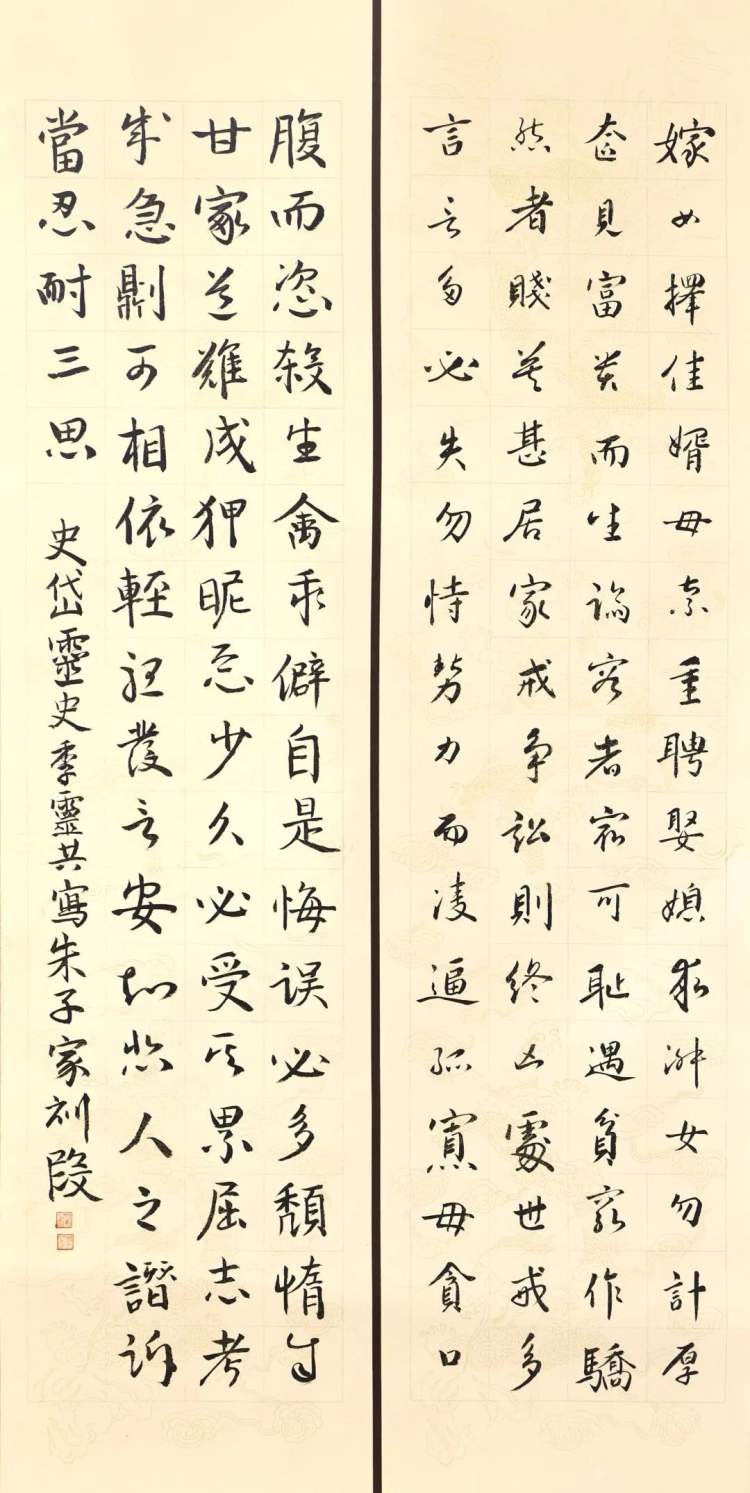 嫁女擇佳婿毋索重聘娶媳求淑女勿計厚
奩見富貴而生諂容者最可恥遇貧窮作驕
態者賤莫甚居家戒争訟則終凶處世戒多
言言多必失勿恃勢力而凌逼孤寡毋貪口
腹而恣殺生禽乖僻自是悔误必多頹惰自
甘家道難成狎昵惡少久必受其累屈志老
成急則可相依輕聽發言安知非人之譖訴
當忍耐三思
史岱靈史季靈共寫朱子家訓段